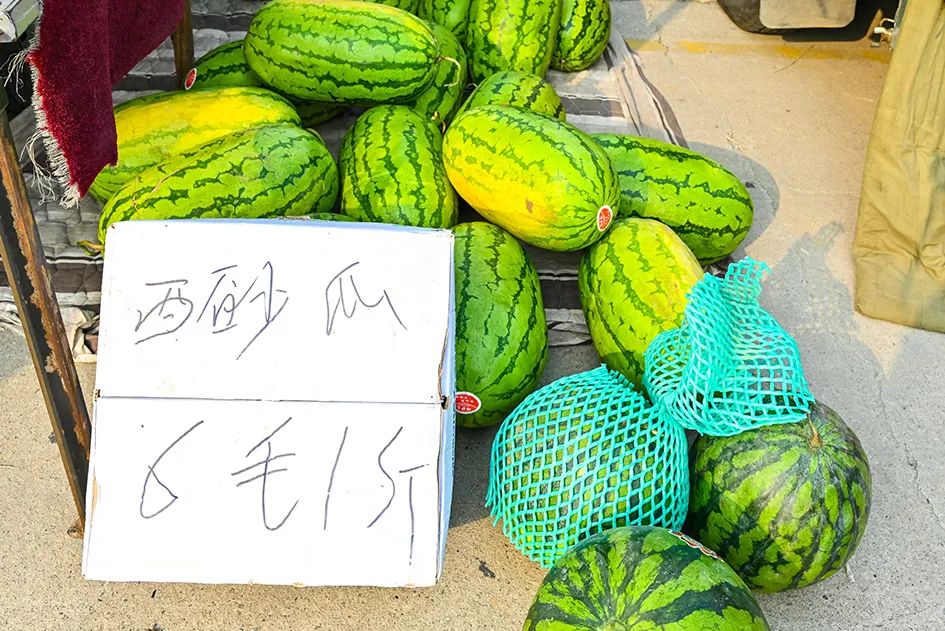 西砂瓜
6毛1斤